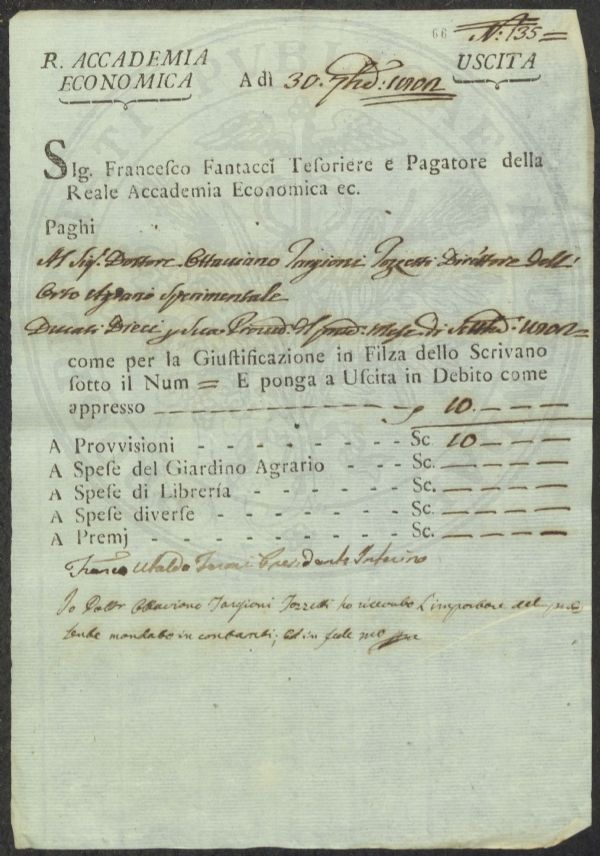 66 N.° 135 =
R. ACCADEMIA
ECONOMICA
USCITA
A dì 30. 7bre: 1802
SIg. Franceſco Fantacci Teſoriere e Pagatore della
Reale Accademia Economica ec.
Paghi
Al Sig.r Dottore Ottaviano Targioni Tozzetti Direttore dell'
Orto Agrario Sperimentale
Ducati Dieci p Sua Provv. mese di 1802 =
come per la Giuſtificazione in Filza dello Scrivano
ſotto il Num = E ponga a Uſcita in Debito come
appreſſo - - - 10. - - -
A Provviſioni - - - - - - - - Sc. 10 - - -
A Speſe del Giardino Agrario - - - - Sc. - - - -
A Speſe di Librería - - - - - - Sc. - - - -
A Speſe diverſe - - - - - - - Sc. - - - -
A Premj - - - - - - - - Sc. - - - -
Ubaldo Feroni Presidente Interino
Io Dottr Ottaviano Targioni Tozzetti ho ricevuto l'importare del pre=
sente mandato in contanti; ed in fede mo ppa